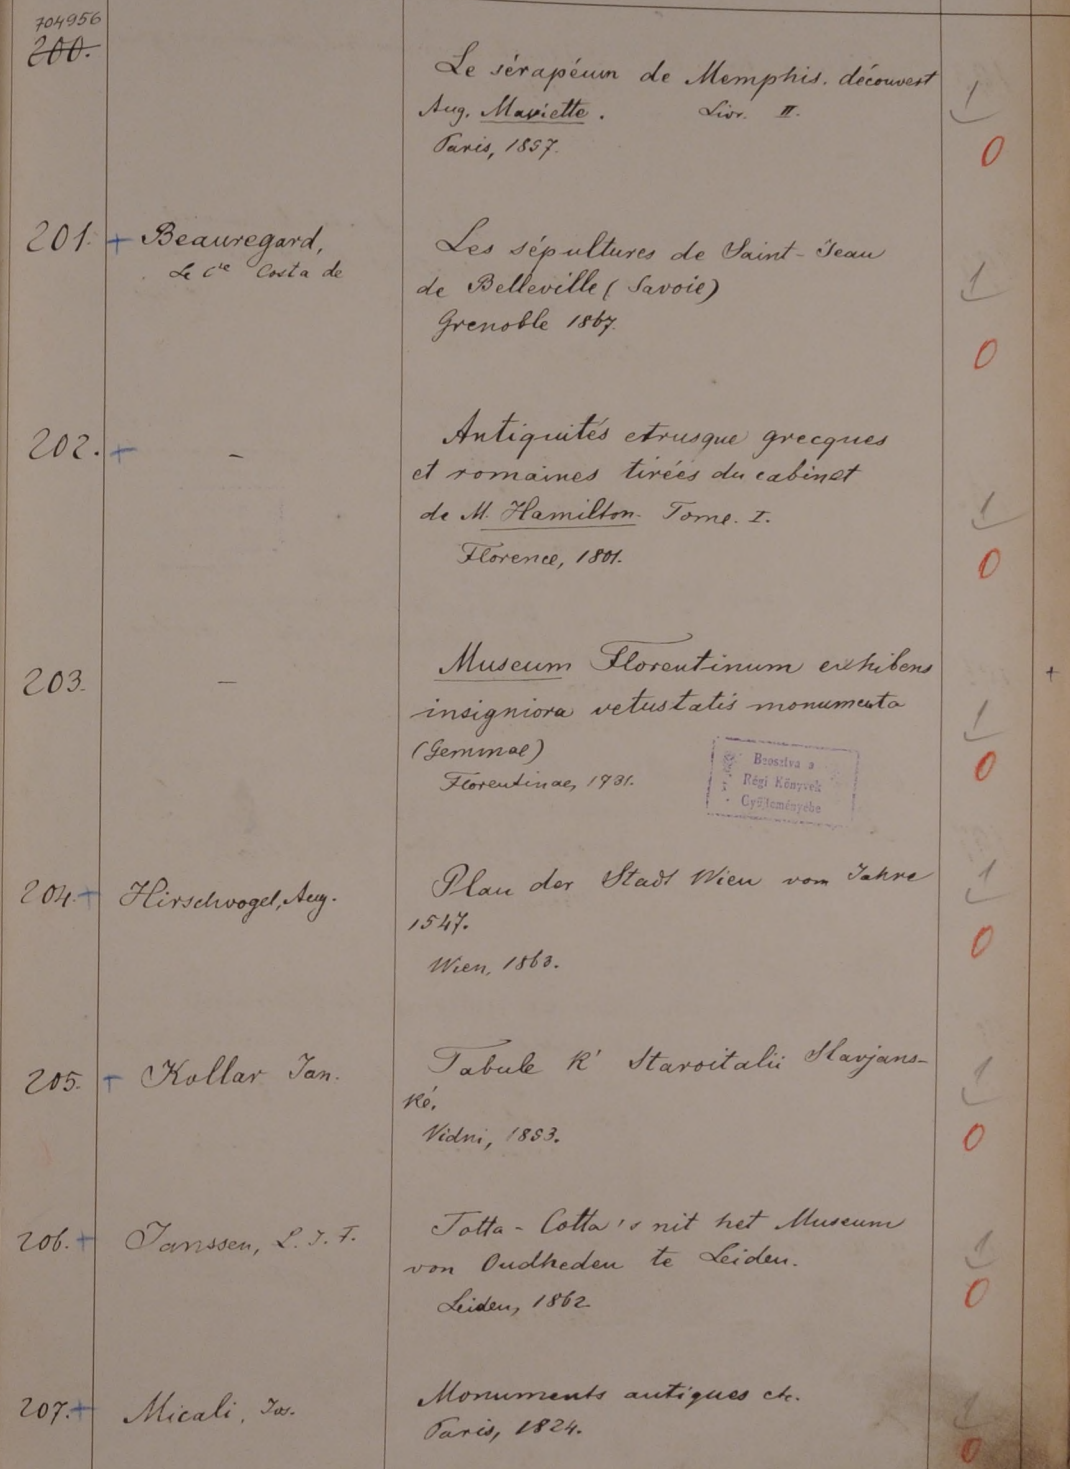 704956
200.
Le sérapéum de Memphis. découvert
Aug. Mariette. Livr. II.
Paris, 1857.
1
0
201. + Beauregard,
Le Cte Costa de
Les sépultures de Saint-Jean
de Belleville (Savoie)
Grenoble 1867.
1
0
202. + –
Antiquités etrusque grecques
et romaines tirées du cabinet
de M. Hamilton. Tome. I.
Florence, 1801.
1
0
203. –
Museum Florentinum exhibens
insigniora vetustatis monumenta
(Gemmae)
Florentinae, 1731.
Beosztva a
Régi Könyvek
Gyűjteményébe
1
0
+
204. + Hirschvogel, Aug.
Plan der Stadt Wien vom Jahre
1547.
Wien, 1863.
1
0
205. + Kollar Jan.
Tabule k' Staroitalii Slavjans-
ké.
Vidni, 1853.
1
0
206. + Janssen, L. J. F.
Totta-Cotta's nit het Museum
von Oudheden te Leiden.
Leiden, 1862.
1
0
207. + Micali, Jos.
Monuments antiques etc.
Paris, 1824.
1
0